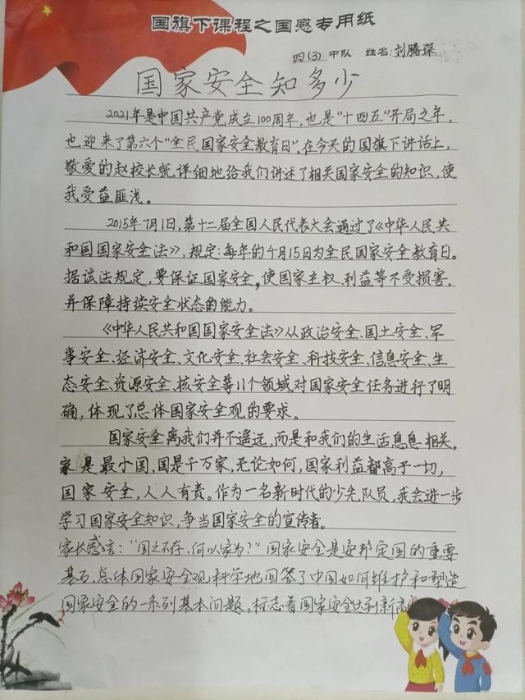 国旗下课程之国感专用纸
四(3)中队 姓名:刘腾琛
国家安全知多少
2021年是中国共产党成立100周年,也是"十四五"开局之年,
也迎来了第六个"全民国家安全教育日",在今天的国旗下讲话上,
敬爱的赵校长就详细地给我们讲述了相关国家安全的知识,使
我受益匪浅。
2015年7月1日,第十二届全国人民代表大会通过了《中华人民共
和国国家安全法》,规定:每年的4月15日为全民国家安全教育日。
据该法规定,要保证国家安全,使国家主权、利益等不受损害,
并保障持续安全状态的能力。
《中华人民共和国国家安全法》从政治安全、国土安全、军
事安全、经济安全、文化安全、社会安全、科技安全、信息安全、生
态安全、资源安全、核安全等11个领域对国家安全任务进行了明
确,体现了总体国家安全观的要求。
国家安全离我们并不遥远,而是和我们的生活息息相关,
家是最小国,国是千万家,无论如何,国家利益都高于一切,
国家安全,人人有责。作为一名新时代的少先队员,我会进一步
学习国家安全知识,争当国家安全的宣传者。
家长感言:"国之不存,何以家为?"国家安全是安邦定国的重要
基石,总体国家安全观科学地回答了中国如何维护和塑造
国家安全的一系列基本问题,标志着国家安全达到新高